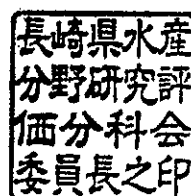 長崎県水産
分野研究評
価分科会
委員長之印